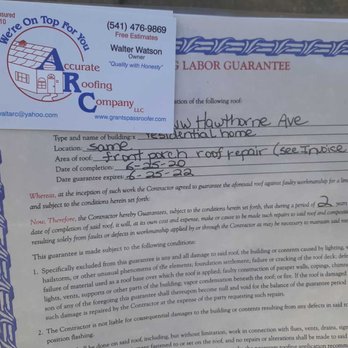 We're On Top For You
Accurate
Roofing
Company LLC
(541) 476-9869
Free Estimates
Walter Watson
Owner
"Quality with Honesty"
www.grantspassroofer.com
LABOR GUARANTEE
of the following roof:
NW Hawthorne Ave
Type and name of building: residential home
Location: same
Area of roof: front porch roof repair (see Invoice
Date of completion: 6-25-20
Date guarantee expires: 6-25-22
Whereas, at the inception of such work the Contractor agreed to guarantee the aforesaid roof against faulty workmanship for a
and subject to the conditions herein set forth:
Now, Therefore, the Contractor hereby Guarantees, subject to the conditions herein set forth, that during a period of 2
date of completion of said roof, it will, at its own cost and expense, make or cause to be made such repairs to said roof and
resulting solely from faults or defects in workmanship applied by or through the Contractor as may be necessary to maintain said
This guarantee is made subject to the following conditions:
1. Specifically excluded from this guarantee is any and all damage to said roof, the building or contents caused by lighting,
hailstorm, or other unusual phenomena of the elements; foundation settlements; failure or cracking of the roof deck;
failure of material used as a roof base over which the roof is applied; faulty construction of parapet walls, copings, chimneys,
lights, vents, supports or other parts of the building; vapor condensation beneath the roof; or fire. If the roof is damaged
son of any of the foregoing this guarantee shall thereupon become null and void for the balance of the guarantee period
such damage is repaired by the Contractor at the expense of the party requesting such repairs.
2. The Contractor is not liable for consequential damages to the building or contents resulting from any defects in said
position flashing.
be done on said roof, including, but without limitation, work in connection with flues, vents, drains,
and no repairs or alterations shall be made to said